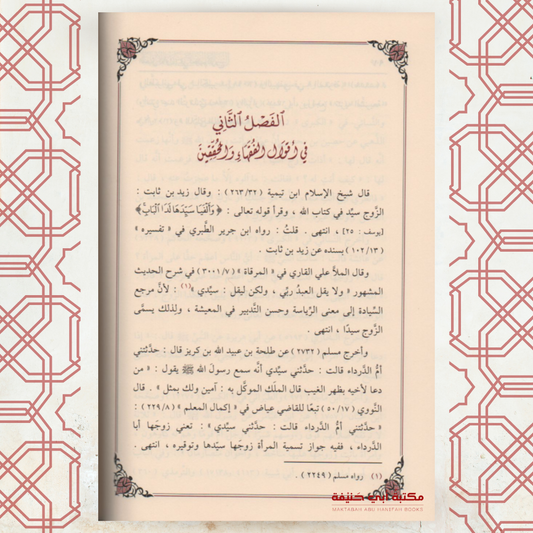 الفَصْلُ الثَّانِي
فِي أَقْوَالِ الفُقَهَاءِ وَالمُحَقِّقِينَ
قال شيخ الإسلام ابن تيمية ( ٢٦٣/٣٢ ) : وقال زيد بن ثابت :
الزَّوج سيِّد في كتاب الله ، وقرأ قوله تعالى : ﴿ وَأَلْفَيَا سَيِّدَهَا لَدَا ٱلْبَابِ ﴾
[ يوسف : ٢٥ ] ، انتهى . قلتُ : رواه ابن جرير الطَّبري في « تفسيره »
( ١٠٢/١٣ ) بسنده عن زيد بن ثابت .
وقال الملَّا علي القاري في « المرقاة » ( ٣٠٠١/٧ ) في شرح الحديث
المشهور « ولا يقل العبدُ ربِّي ، ولكن ليقل : سيِّدي »(١) : لأنَّ مرجع
السِّيادة إلى معنى الرِّياسة وحسن التَّدبير في المعيشة ، ولذلك يسمَّى
الزَّوج سيدًا ، انتهى .
وأخرج مسلم ( ٢٧٣٢ ) عن طلحة بن عبيد الله بن كريز قال : حدَّثتني
أمُّ الدَّرداء قالت : حدَّثني سيِّدي أنَّه سمع رسول الله ﷺ يقول : « من
دعا لأخيه بظهر الغيب قال الملَك الموكَّل به : آمين ولك بمثل » . قال
النَّووي ( ٥٠/١٧ ) تبعًا للقاضي عياض في « إكمال المعلم » ( ٢٢٩/٨ ) :
« حدَّثتني أمُّ الدَّرداء قالت : حدَّثني سيِّدي » : تعني زوجَها أبا
الدَّرداء ، ففيه جواز تسمية المرأة زوجَها سيِّدها وتوقيره ، انتهى .
(١) رواه مسلم ( ٢٢٤٩ ) .
مكتبة أبي حنيفة
MAKTABAH ABU HANIFAH BOOKS